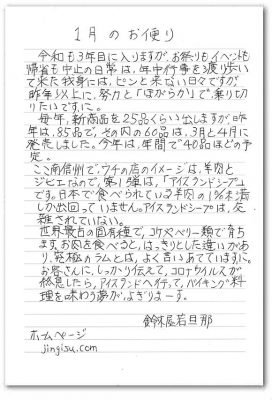 1月のお便り
令和も3年目に入りますが、お祭りもイベントも
帰省も中止の日常は、年中行事を渡り歩い
て来た我身には、ピンと来ない日々ですが、
昨年以上に、努力と「ほがらか」で乗り切
りたいですに。
毎年、新商品を25品くらい出しますが、昨
年は、85品で、その内の60品は、3月と4月に
発売しました。今年は、年間で40品ほどの予
定。
ここ南信州で、ウチの店のイメージは、羊肉と
ジビエなので、第1弾は、「アイスランドシープ」
です。日本で食べられている羊肉の1%未満
しか出回っていません。アイスランドシープは、交
雑されていない。
世界最古の固有種で、コケやベリー類で育ち
ます。お肉を食べると、はっきりとした違いがあ
り、究極のラムとは、よく言いあてています。に。
お客さんに、しっかり伝えて、コロナウイルスが
終息したら、アイスランドへ行って、バイキング料
理を味わう夢が、よぎりまーす。
鈴木屋若旦那
ホームページ
jingisu.com